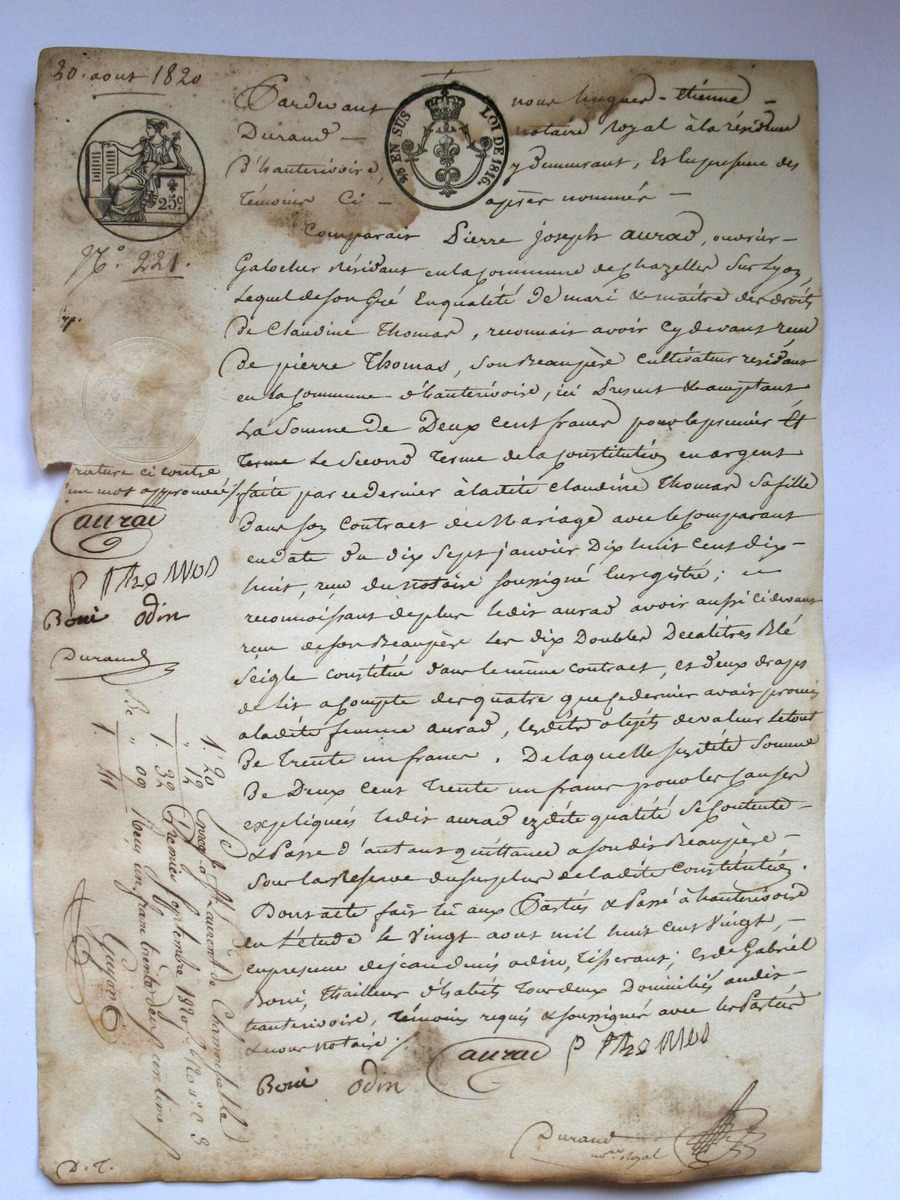 20. aout 1820
25c
5/8 EN SUS LOI DE 1816.
N.° 221.
Pardevant nous hugues-étienne
Durand notaire royal à la résidence
d'hauterivoire, y demeurant, Et en presence des
témoins Ci- après nommés
Comparait Pierre joseph aurad, ouvrier
Galocher résidant en la commune de chazelles sur Lyon,
Lequel de son gré En qualité de mari & maitre des droits
de Claudine Thomas, reconnait avoir cy devant reçu
de pierre Thomas, son Beaupère cultivateur residant
en la Commune d'hauterivoire, ici Present & acceptant
La Somme de Deux cent francs pour le premier Et
terme Le Second terme de la Constitution en argent
faite par ce dernier à ladite Claudine Thomas Sa fille
dans son Contract de Mariage avec le Comparant
en date du dix sept janvier Dix huit cent dix-
huit, reçu du notaire soussigné Enregistré;
reconnoissant de plus ledit aurad avoir aussi ci devant
reçu de son Beaupère les dix Doubles Decalitres Blé
Seigle constitués dans le même contract, et deux draps
de lit a compte des quatre que ce dernier avait promis
a ladite femme aurad, lesdits objets de valeur Le tout
De trente un francs. De laquelle susdite Somme
De Deux cent trente un francs pour les Causes
expliquées ledit aurad ezdite qualité Se Contente
& Passe d'autant quittance a son dit Beaupère
Sous la Réserve du surplus de ladite Constitution.
Dont acte fait lu aux Parties & Passé à hauterivoire
en l'étude le vingt aout mil huit cent vingt,
en presence de jean denis odin, tisserant; et de Gabriel
Boni, thailleur d'habits tous deux Domiciliés audit
hauterivoire, témoins requis & soussignés avec les Parties
& nous notaire
aurad P Thomas
Boni odin
Durand
no.re royal
rature ci contre
d'un mot approuvée
aurad
P Thomas
Boni odin
Durand
1. 20
" 12
1. 32
Be " 09
1. 41
Enreg. à St Laurent de Chamousset Le
Premier septembre 1820
Reçu un franc trente deux centimes
Guyon
D. T.